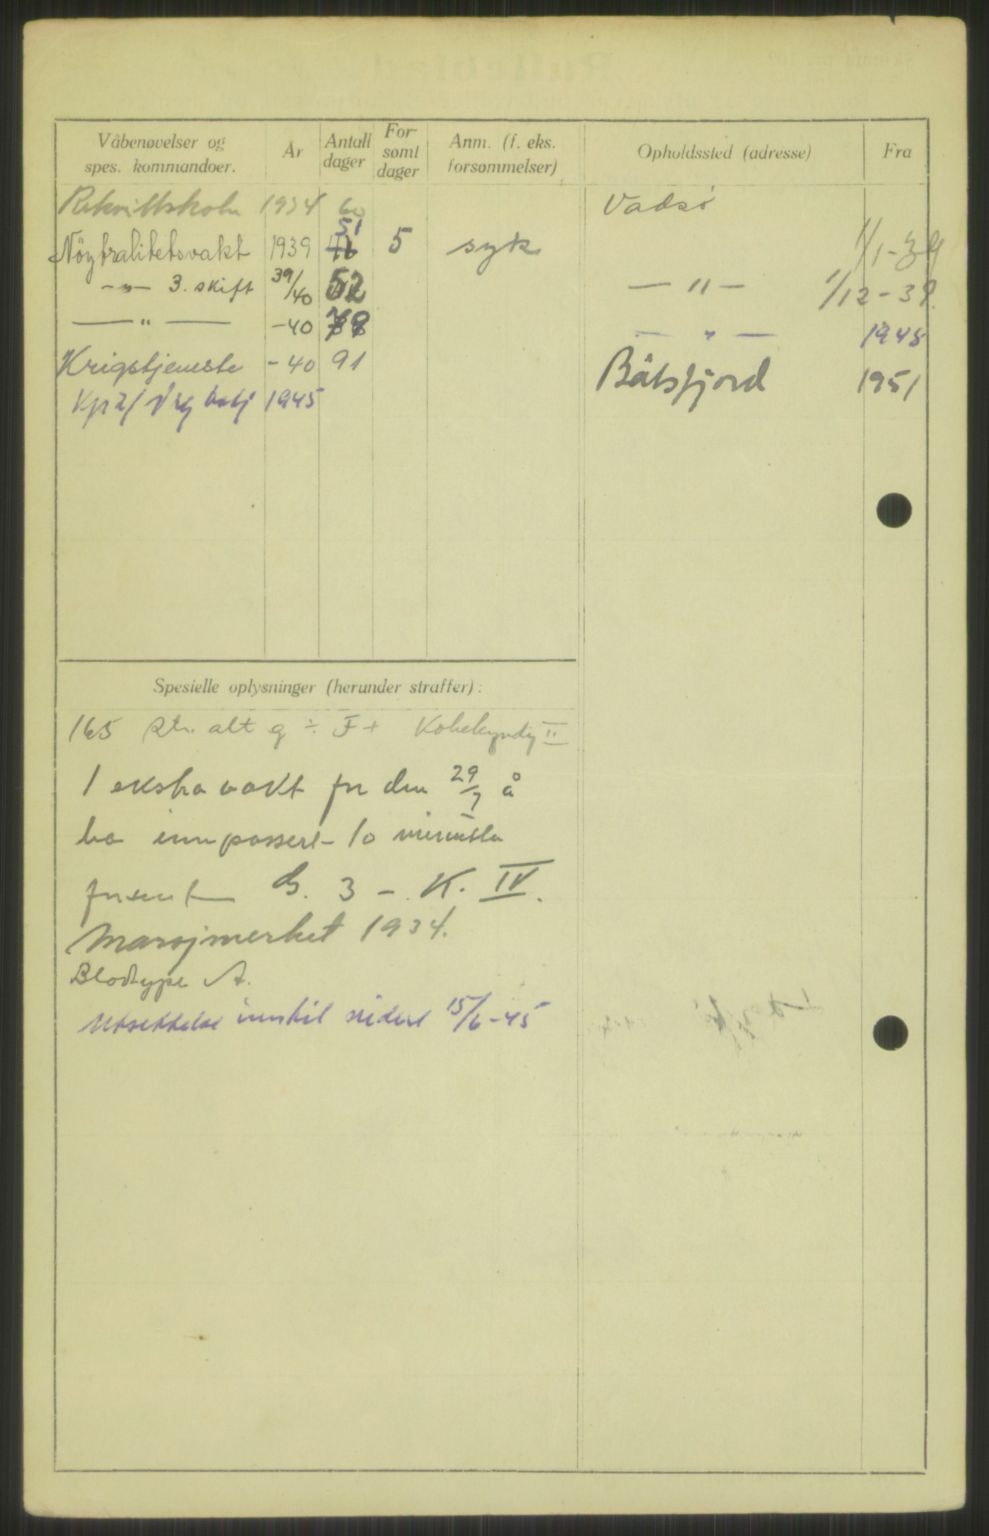 Våbenøvelser og spes. kommandoer. År Antall dager For-sømt dager Anm. (f. eks. forsømmelser) Opholdssted (adresse) Fra
Rekruttskole 1934 60 Vadsø 1/1-39
51
Nøytralitetsvakt 1939 46 5 syk
-"- 3. skift 39/40 52 - " - 1/12-39.
- " - -40 78 - " - 1945
Krigstjeneste -40 91 Båtsfjord 1951
Kp 2/ 1945
Spesielle oplysninger (herunder straffer):
165 alt g ÷ F+ II
1 ekstra vakt for den 29/7 å
ha innpassert 10 minutter
forsent G. 3 - K. IV.
Marsjmerket 1934.
Blodtype A.
Utsettelse inntil videre 15/6-45